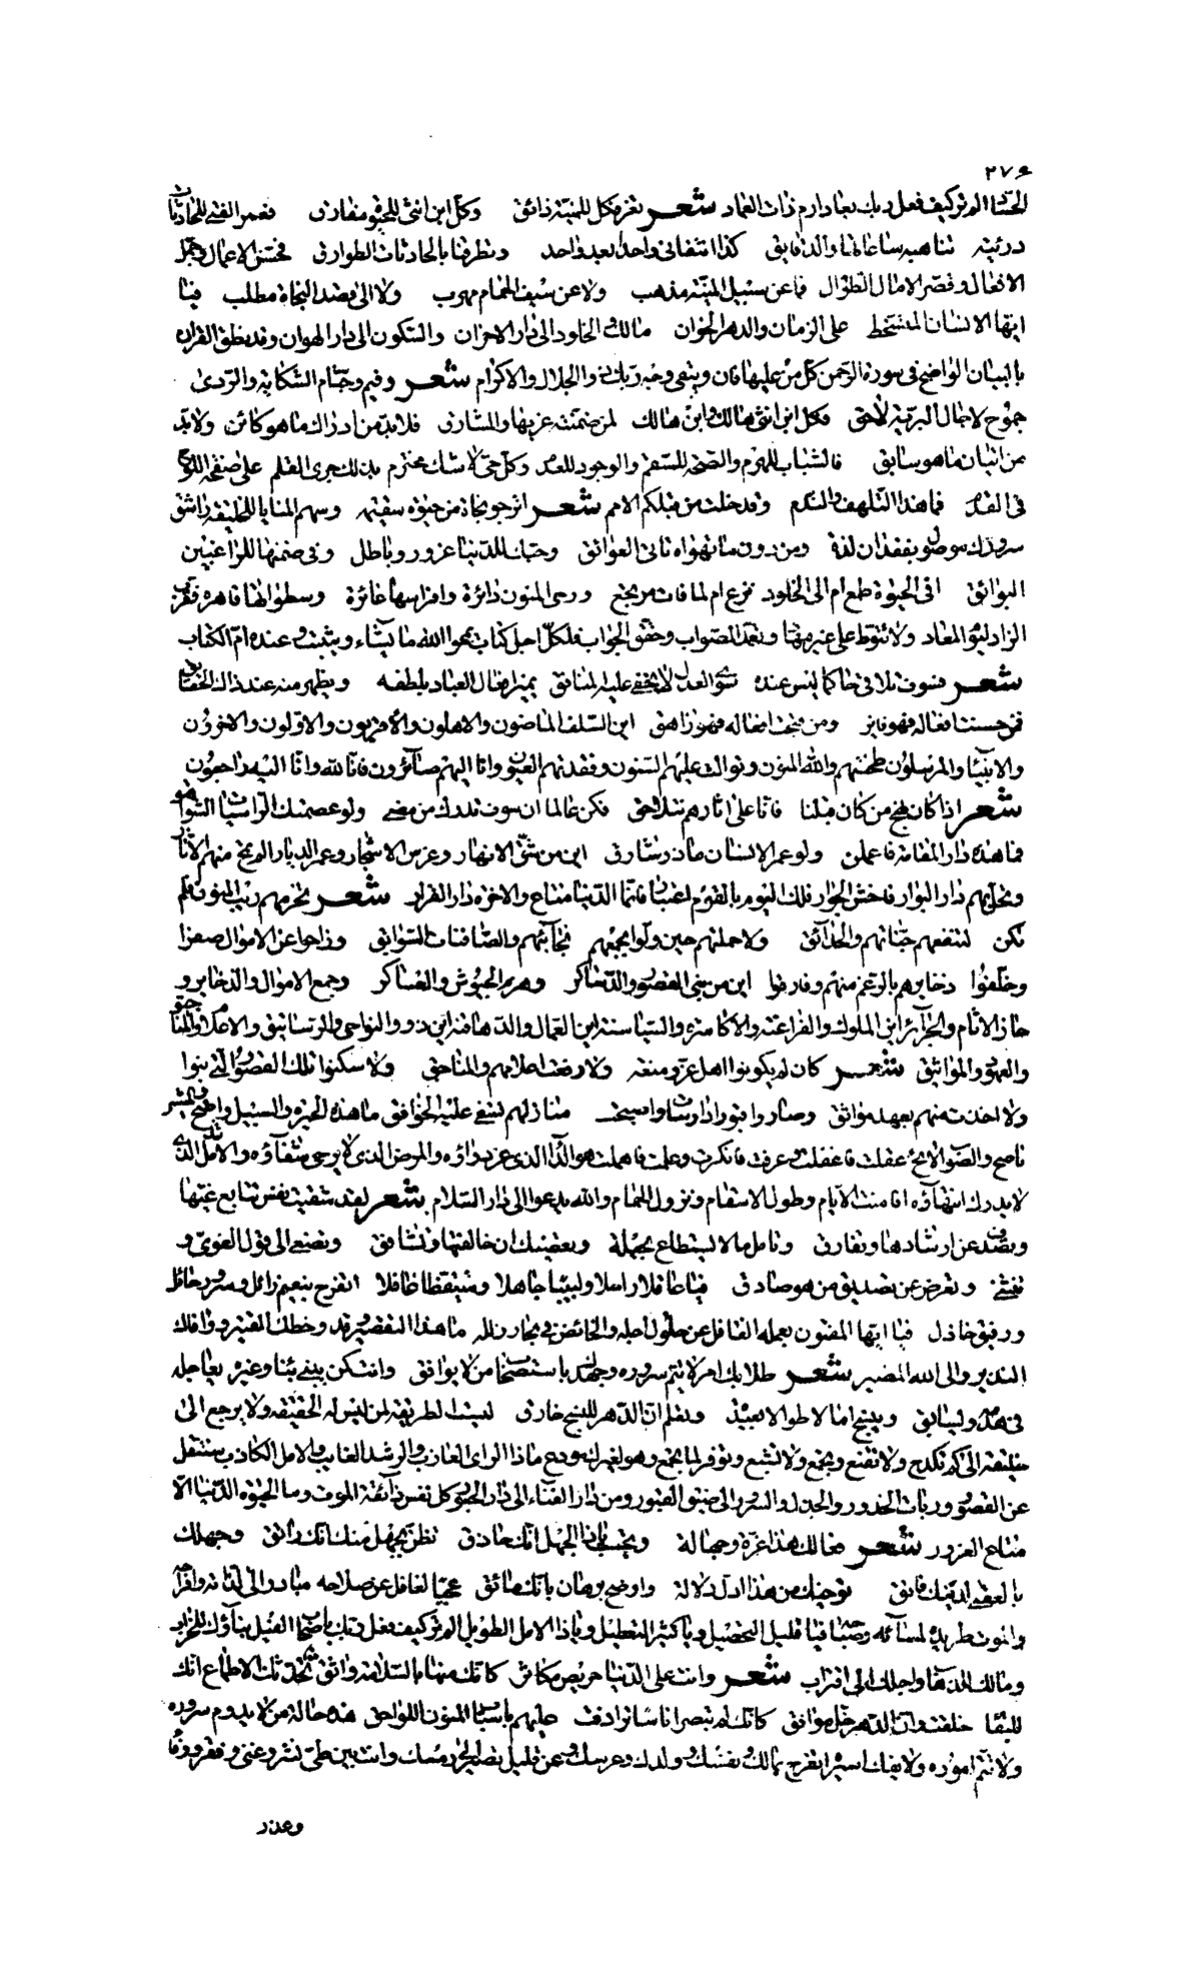 ٢٧٩
الحساب الم تر كيف فعل ربك بعاد ارم ذات العماد شعر نفر فكل للمنية ذائق وكل ابن انثى للحيوة مفارق فعمر الفتى للحادثات
دريئة تناهبه ساعاتها والدقايق كذا نتفانى واحداً بعد واحد وتطرقنا بالحادثات الطوارق فحسن الاعمال وجمل
الافعال وقصر الامال الطوال فما عن سبيل المنية مذهب ولا عن سيف الحمام مهرب ولا الى قصد النجاة مطلب فيا
ايها الانسان المتسخط على الزمان والدهر الخوان مالك والخلود الى دار الاحزان والسكون الى دار الهوان وقد نطق القران
بالبيان الواضح فى سورة الرحمن كل من عليها فان ويبقى وجه ربك ذو الجلال والاكرام شعر وفيم وحتام الشكاية والردى
جموح لاجال البرية لاحق فكل ابن انثى هالك وابن هالك لمن ضمنته غربها والمشارق فلا بد من ادراك ما هو كائن ولا بد
من اتيان ما هو سابق فالشباب للهرم والصحة للسقم والوجود للعدم وكل حى لا شك مخترم بذلك جرى القلم على صفحة اللوح
فى القدم فما هذا التلهف والندم وقد خلت من قبلكم الامم شعر اترجو نجاة من حيوة سقيمة وسهم المنايا للخليقة راشق
سرورك موصول بفقدان لذة ومن دون ما تهواه تاتى العوائق وحبك للدنيا غرور وباطل وفى ضمنها للراغبين
البوائق افى الحيوة طمع ام الى الخلود نزع ام لما فات مرجع ورحى المنون دائرة وافراسها غائرة وسطواتها قاهرة فقرب
الزاد ليوم المعاد ولا تتوط على غير مهاد وتعمد الصواب وحقق الجواب فلكل اجل كتاب يمحوا الله ما يشاء ويثبت وعنده ام الكتاب
شعر فسوف تلاقى حاكما ليس عنده سوى العدل لا يخفى عليه المنافق يميز افعال العباد بلطفه ويظهر منه عند ذاك الحقائق
فمن حسنت افعاله فهو فايز ومن قبحت افعاله فهو زاهق اين السلف الماضون والاهلون والاقربون والاولون والاخرون
والانبياء والمرسلون طحنتهم والله المنون وتوالت عليهم السنون وفقدتهم العيون وانا اليهم صائرون فانا لله وانا اليه راجعون
شعر اذا كان نهج من كان قبلنا فانا على اثارهم نتلاحق فكن عالما ان سوف تدرك من مضى ولو عصمتك الراسيات الشواهق
فما هذه دار المقامة فاعلمن ولو عمر الانسان ما ذر شارق اين من شق الانهار وغرس الاشجار وعمر الديار الم تمح منهم الاثار
وتحل بهم دار البوار فاخش الجوار فلك اليوم بالقوم اعتبار فانما الدنيا متاع والاخرة دار القرار شعر تخرمهم ريب المنون فلم
تكن لتنفعهم جناتهم والحدائق ولا حملتهم حين ولوا بجمعهم نجائبهم والصافنات السوابق وراحوا عن الاموال صفرا
وخلفوا ذخايرهم بالرغم منهم وفارقوا اين من بنى القصور والدساكر وهزم الجيوش والعساكر وجمع الاموال والذخاير و
حاز الاثام والجرائر اين الملوك والفراعنة والاكاسرة والسياسنة اين العمال والدهاقنة اين ذوو النواحى والرساتيق والاعلام والمناجيق
والعهود والمواثيق شعر كان لم يكونوا اهل عز ومنعة ولا رفعت اعلامهم والمناجق ولا سكنوا تلك القصور التى بنوا
ولا اخذت منهم بعهد مواثق وصاروا قبورا دارسات واصبحت منازلهم تسفى عليه الخوافق ما هذه الحيرة والسبيل واضح والمشير
ناصح والصواب لائح عقلت فاغفلت وعرفت فانكرت وعلمت فاهملت هو الداء الذى عز دواؤه والمرض الذى لا يرجى شفاؤه والامل الذى
لا يدرك انتهاؤه افامنت الايام وطول الاسقام ونزول الحمام والله يدعوا الى دار السلام شعر لقد شقيت نفس تتابع غيها
وتصدف عن ارشادها وتفارق وتامل ما لا يستطاع بحيلة وتعصيك ان خالفتها وتشاقق وتصغى الى قول الغوى و
تنثنى وتعرض عن تصديق من هو صادق فيا عاقلا راحلا ولبيبا جاهلا ومتيقظا غافلا اتفرح بنعيم زائل وسرور حائل
ورفيق خاذل فيا ايها المفتون بعمله الغافل عن حلول اجله والخائض فى بحار زلله ما هذا التقصير وقد وخطك القتير ووافاك
النذير والى الله المصير شعر طلابك امر لا يتم سروره وجهدك باستصحاب من لا يوافق وانت كمن يبنى بناء وغيره يعاجله
فى هدمه ويسابق وينسج امالا طوالا بعيدة وتعلم ان الدهر للنسج خارق ليست الطريقة لمن ليس له الحقيقة ولا يرجع الى
خليقة الى كم تكدح ولا تقنع وتجمع ولا تشبع وتوفر لما تجمع وهو لغيرك مودع ماذا الراى العازب والرشد الغايب والامل الكاذب ستنتقل
عن القصور وربات الخدور والجذل والسرور الى ضيق القبور ومن دار الفناء الى دار الحبور كل نفس ذائقة الموت وما الحيوة الدنيا الا
متاع الغرور شعر فعالك هذا غرة وجهالة وتحسب يا ذا الجهل انك حاذق تظن بجهل منك انك راتق وجهلك
بالعقبى لدينك فاتق توخيك من هذا ادل دلالة واوضح برهان بانك مائق عجبا لغافل عن صلاحه مبادر الى لذاته وافراحه
والموت طريده لمسائه وصباحه فيا قليل التحصيل ويا كثير التعطيل ويا ذا الامل الطويل الم تر كيف فعل ربك باصحاب الفيل بناؤك للخراب
ومالك للذهاب واجلك الى اقتراب شعر وانت على الدنيا حريص مكاثر كانك منها بالسلامة واثق تحدثك الاطماع انك
للبقاء خلقت وان الدهر خل موافق كانك لم تبصر اناسا ترادفت عليهم باسباب المنون اللواحق هذه حالة من لا يدوم سروره
ولا تتم اموره ولا يفك اسيره اتفرح بمالك ونفسك وولدك وعرسك وعن قليل تصير الى رمسك وانت بين طى ونشر وغنى وفقر ووفاء
وغدر